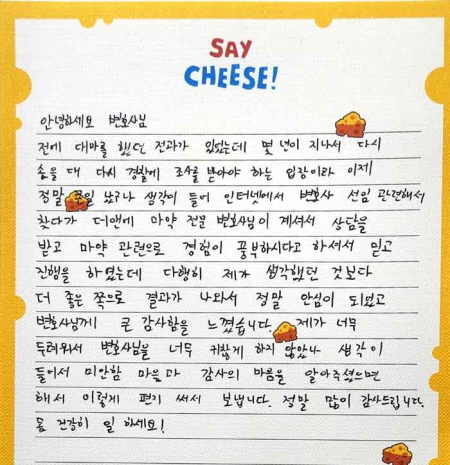 SAY
CHEESE!
안녕하세요 변호사님
전에 대마를 했던 전과가 있었는데 몇 년이 지나서 다시
손을 대 다시 경찰에 조사를 받아야 하는 입장이라 이제
정말 큰일 났구나 생각이 들어 인터넷에서 변호사 선임 관련해서
찾다가 더앤에 마약 전문 변호사님이 계셔서 상담을
받고 마약 관련으로 경험이 풍부하시다고 하셔서 믿고
진행을 하였는데 다행히 제가 생각했던 것보다
더 좋은 쪽으로 결과가 나와서 정말 안심이 되었고
변호사님께 큰 감사함을 느꼈습니다. 제가 너무
두려워서 변호사님을 너무 귀찮게 하지 않았나 생각이
들어서 미안함 마음과 감사의 마음을 알아주셨으면
해서 이렇게 편지 써서 보냅니다. 정말 많이 감사드립니다.
몸 건강히 일 하세요!